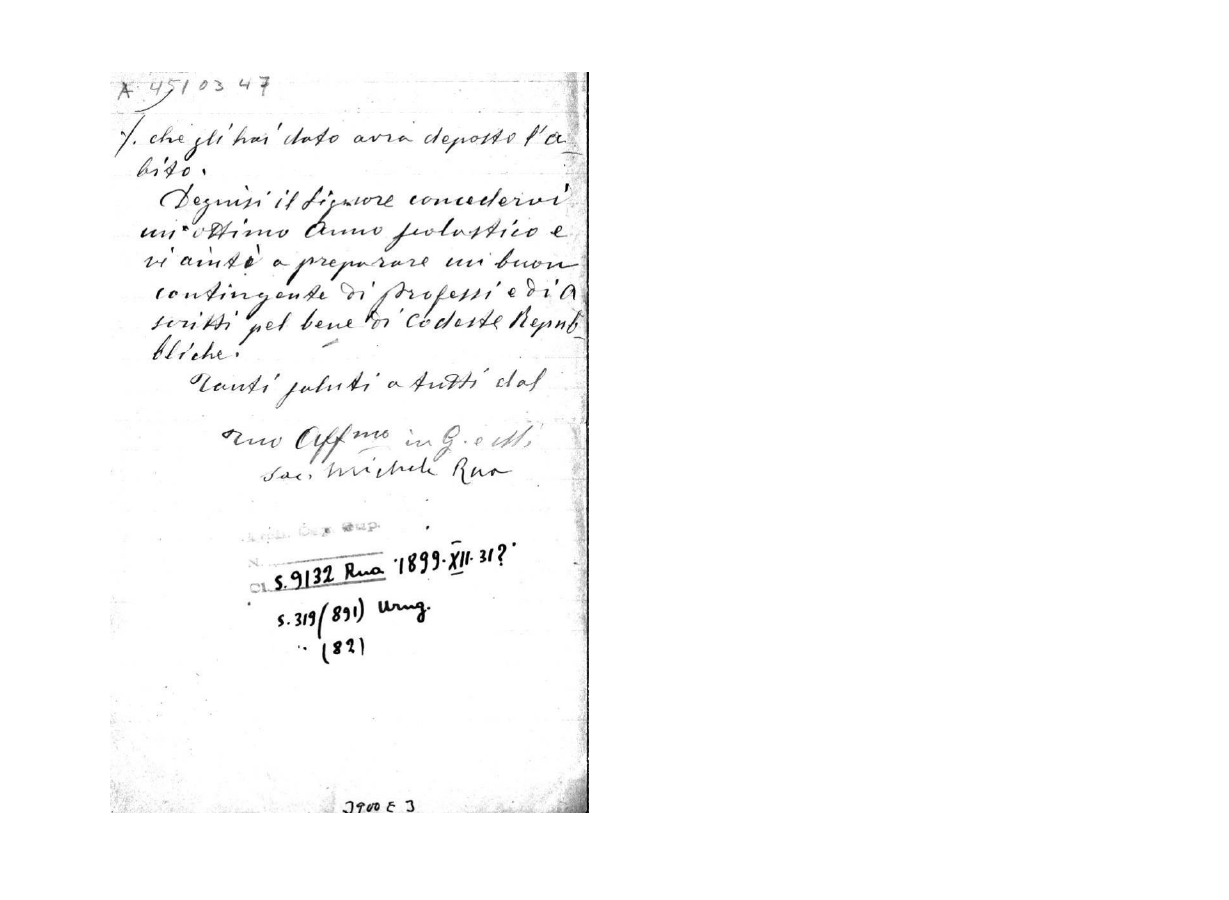 A 451 03 47
/. che gli hai dato avrà deposto l'a
bito.
Degnisi il Signore concedervi
un ottimo Anno scolastico e
vi aiuti a preparare un buon
contingente di professi e di A
scritti pel bene di codeste Repub
bliche.
Tanti saluti a tutti dal
Tuo Affmo in G. e M.
Sac. Michele Rua
Cap. Sup.
N.
Cl. S. 9132 Rua 1899.XII.31?
S. 319 (891) Urug.
" (82)
3900 E 3